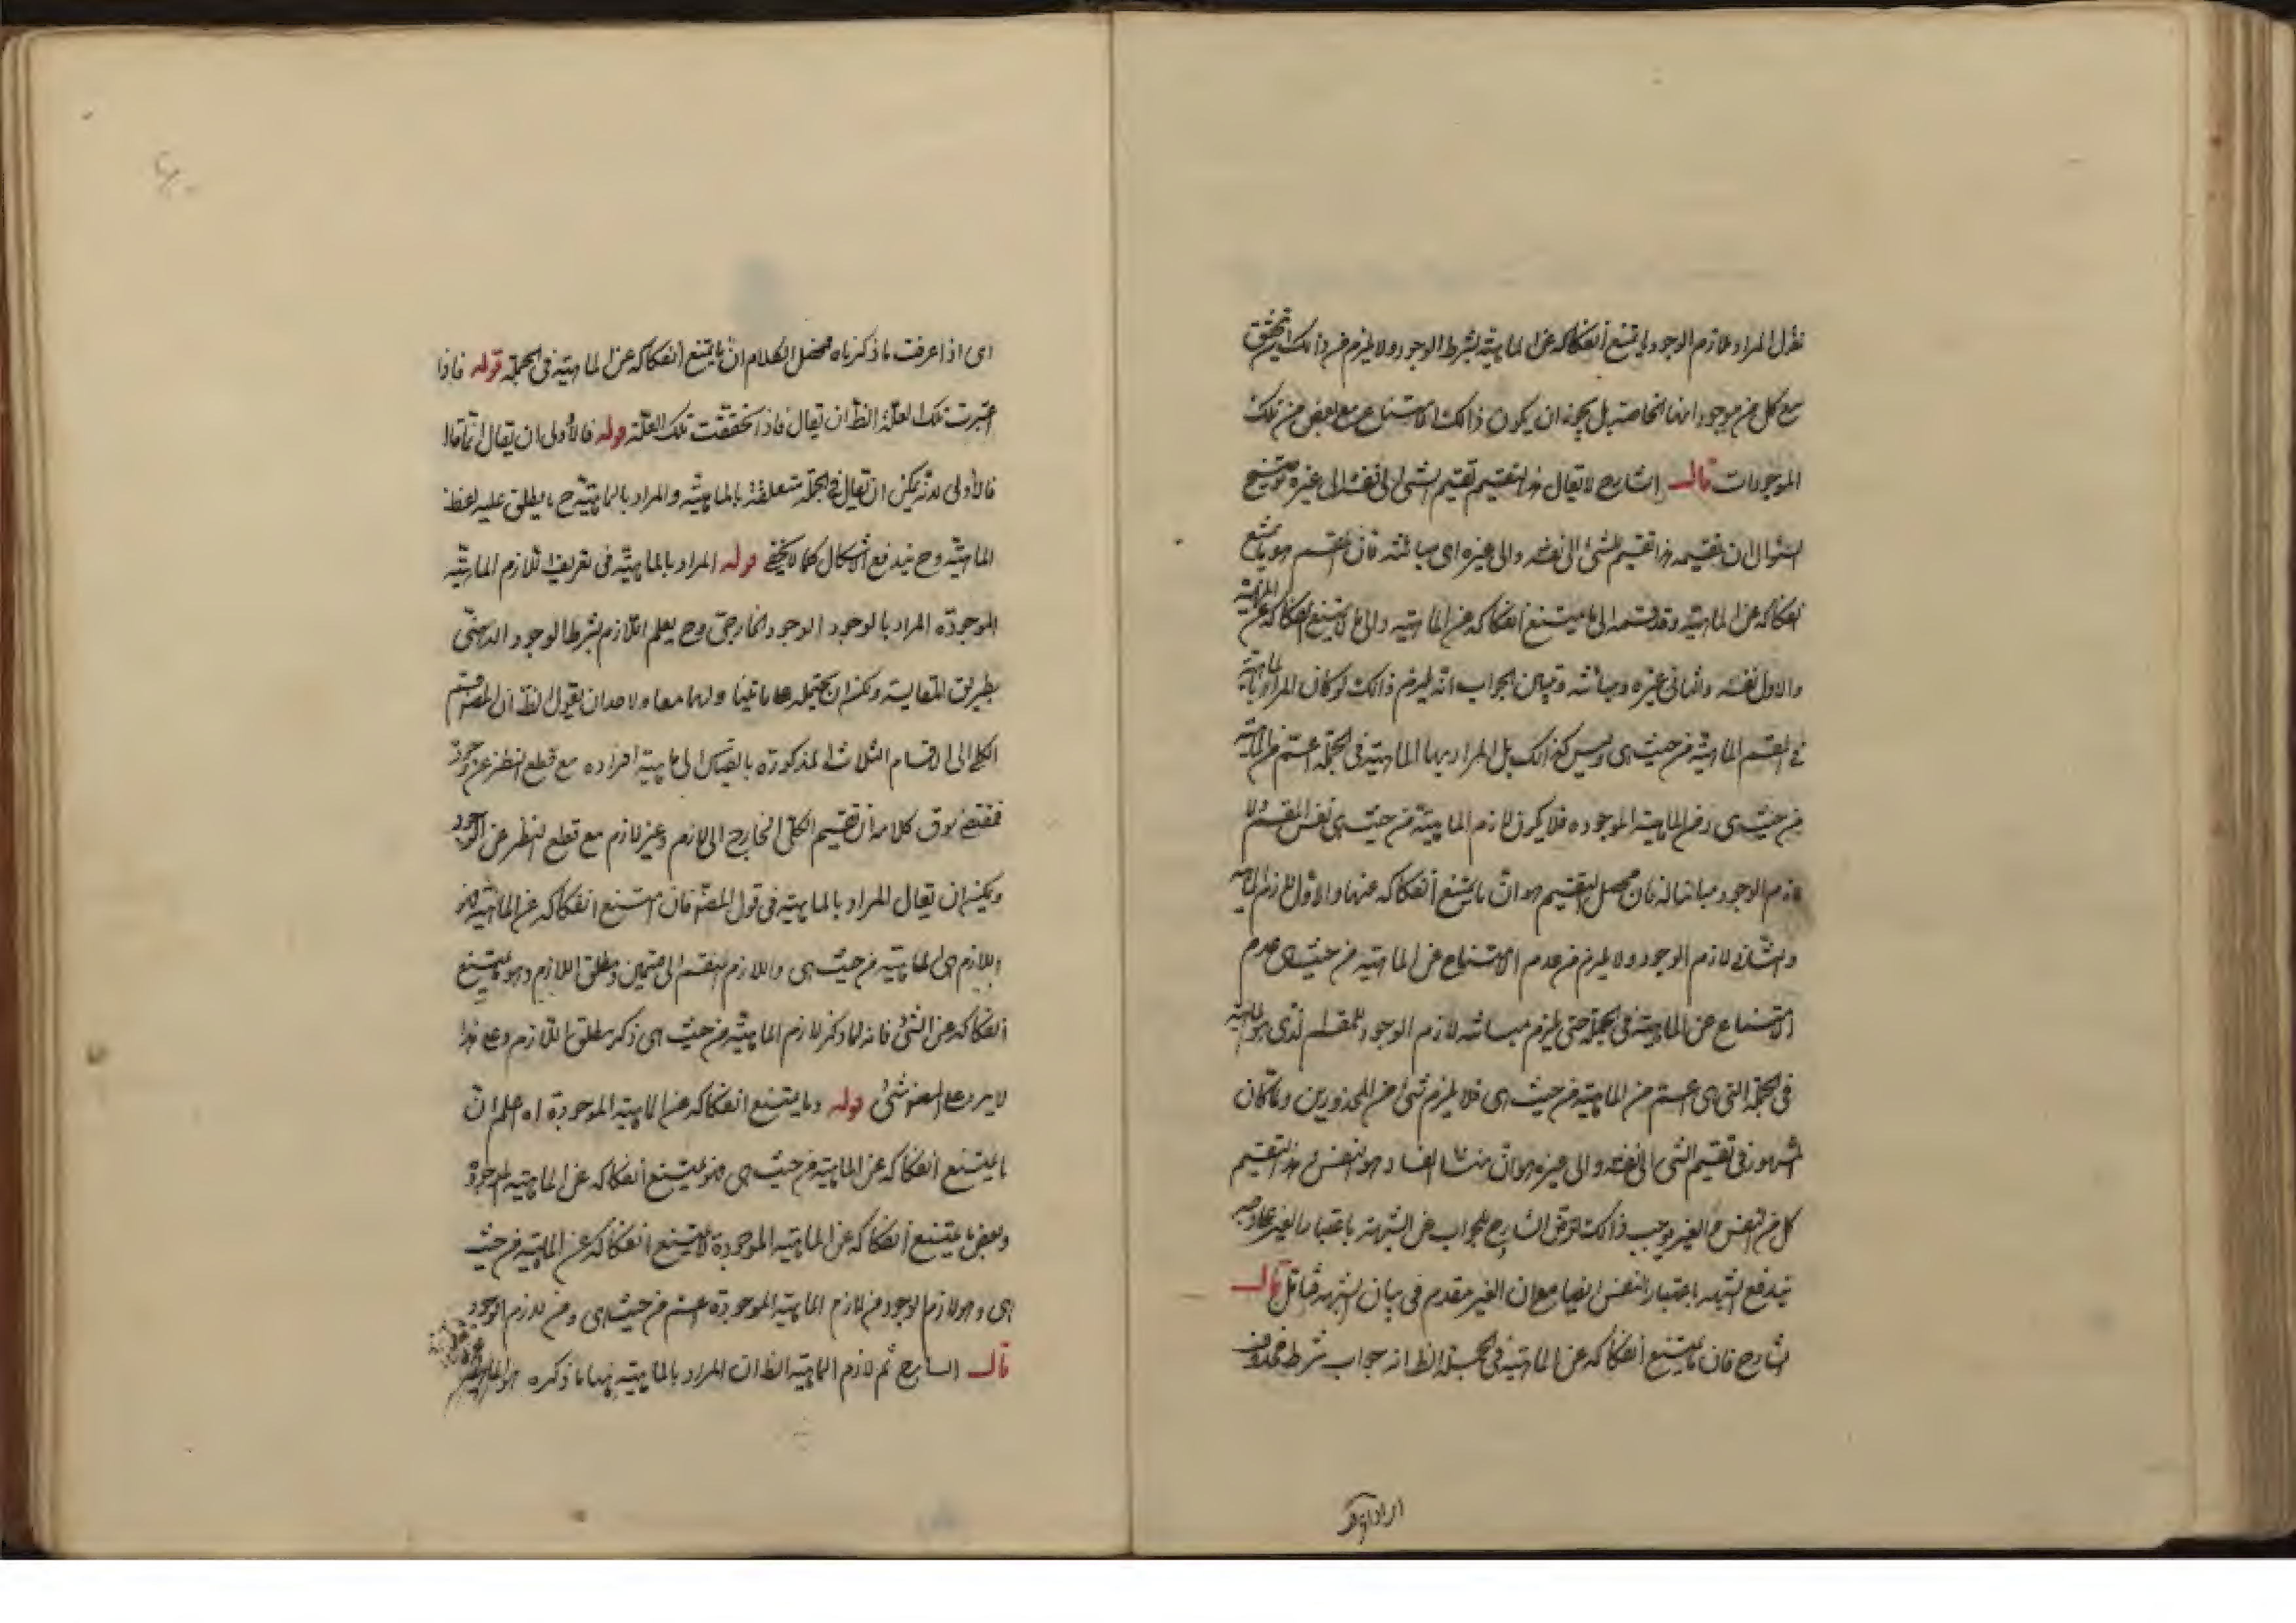 نقول المراد بلازم الوجود ما يمتنع انفكاكه عن الماهية بشرط الوجود ولا يلزم من ذالك ان يتحقق
مع كل من موجوداتها الخاصة بل يجوز ان يكون ذالك الامتناع مع بعض من تلك
الموجودات قال الشارح لا يقال هذا التقسيم تقسيم الشئ الى نفسه والى غيره توضيح
السؤال ان تقسيمه هذا تقسيم الشئ الى نفسه والى غيره اى مباينه فان المقسم هو ما يمتنع
انفكاكه عن الماهية وقد قسمه الى ما يمتنع انفكاكه عن الماهية والى ما لا يمتنع انفكاكه عن الماهية
والاول نفسه والثانى غيره ومباينه وبيان الجواب انه يلزم ذالك لو كان المراد بالماهية
فى المقسم الماهية من حيث هى وليس كذالك بل المراد بها الماهية فى الجملة اعم من الماهية
من حيث هى ومن الماهية الموجودة فلا يكون لازم الماهية من حيث هى نفس المقسم ولا
لازم الوجود مباينا له فان محصل التقسيم هو ان ما يمتنع انفكاكه عنها والاول لازم الماهية
والثانى لازم الوجود ولا يلزم من عدم الامتناع عن الماهية من حيث هى عدم
الامتناع عن الماهية فى الجملة حتى يلزم مباينة لازم الوجود للمقسم الذى هو الماهية
فى الجملة التى هى اعم من الماهية من حيث هى فلا يلزم شئ من المحذورين ولما كان
المشهور فى تقسيم الشئ الى نفسه والى غيره هو ان منشا الفساد هو النفس وهذا التقسيم
كل من النفس والغير يوجب ذالك الشارح للجواب عن الشبهة باعتبار الغير
يندفع الشبهه باعتبار النفس ايضا مع ان الغير مقدم فى بيان الشبهة فتامل قال
الشارح فان ما يمتنع انفكاكه عن الماهية فى الجملة الظ انه جواب شرط محذوف
اى اذا عرفت ما ذكرناه محصل الكلام ان ما يمتنع انفكاكه عن الماهية فى الجملة قوله فاذا
اعتبرت تلك العلة الظ ان يقال فاذا تحققت تلك العلة قوله فالاولى ان يقال انما قال
فالاولى لانه يمكن ان يقال فى الجملة متعلقة بالماهية والمراد بالماهية ح ما يطلق عليه لفظ
الماهية وح يندفع الاشكال كما لا يخفى قوله المراد بالماهية فى تعريف لازم الماهية
الموجودة المراد بالوجود الوجود الخارجى وح يعلم اللازم بشرط الوجود الذهنى
بطريق المقايسة ويمكن ان يحمل على ما يتناولهما معا ولاحد ان يقول الظ ان المصنف قسم
الكلى الى الاقسام الثلاث المذكورة بالقياس الى ماهية افراده مع قطع النظر عن وجود
فمقتضى سوق كلامه ان تقسيم الكلى الخارج الى لازم وغير لازم مع قطع النظر عن الوجود
ويمكن ان يقال المراد بالماهية فى قول المصنف فان امتنع انفكاكه عن الماهية فهو
اللازم هى الماهية من حيث هى واللازم المنقسم الى قسمين مطلق اللازم وهو ما يمتنع
انفكاكه عن الشئ فانه لما ذكر لازم الماهية من حيث هى ذكر مطلق اللازم وعلى هذا
لا يرد على المصنف شئ قوله وما يمتنع انفكاكه عن الماهية الموجودة اه اعلم ان
ما يمتنع انفكاكه عن الماهية من حيث هى فهو يمتنع انفكاكه عن الماهية الموجودة
وبعض ما يمتنع انفكاكه عن الماهية الموجودة لا يمتنع انفكاكه عن الماهية من حيث
هى وهو لازم الوجود فلازم الماهية الموجودة اعم من حيث هى ومن لازم الوجود
قال الشارح ثم لازم الماهية الظ ان المراد بالماهية هنا ما ذكره